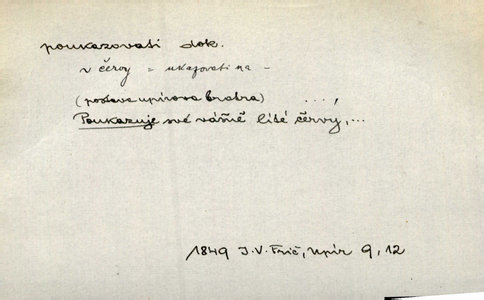 poukazovati dok.
v červy = ukazovati na -
(postava upírova bratra) ...,
Poukazuje své vášně lité červy, ...
1849 J. V. Frič, Upír 9, 12